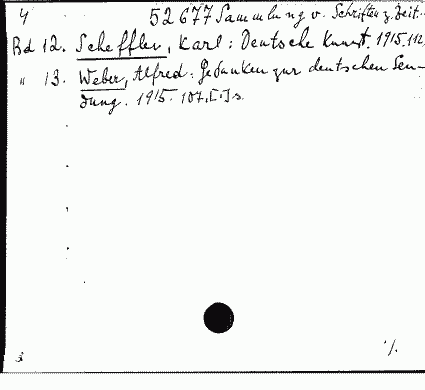 4 52677 Sammlung v. Schriften z. Zeit..
Bd 12. Scheffler, Karl: Deutsche Kunst. 1915. 112
" 13. Weber, Alfred: Gedanken zur deutschen Sen-
dung. 1915. 107,[1] s.
3 ·/.